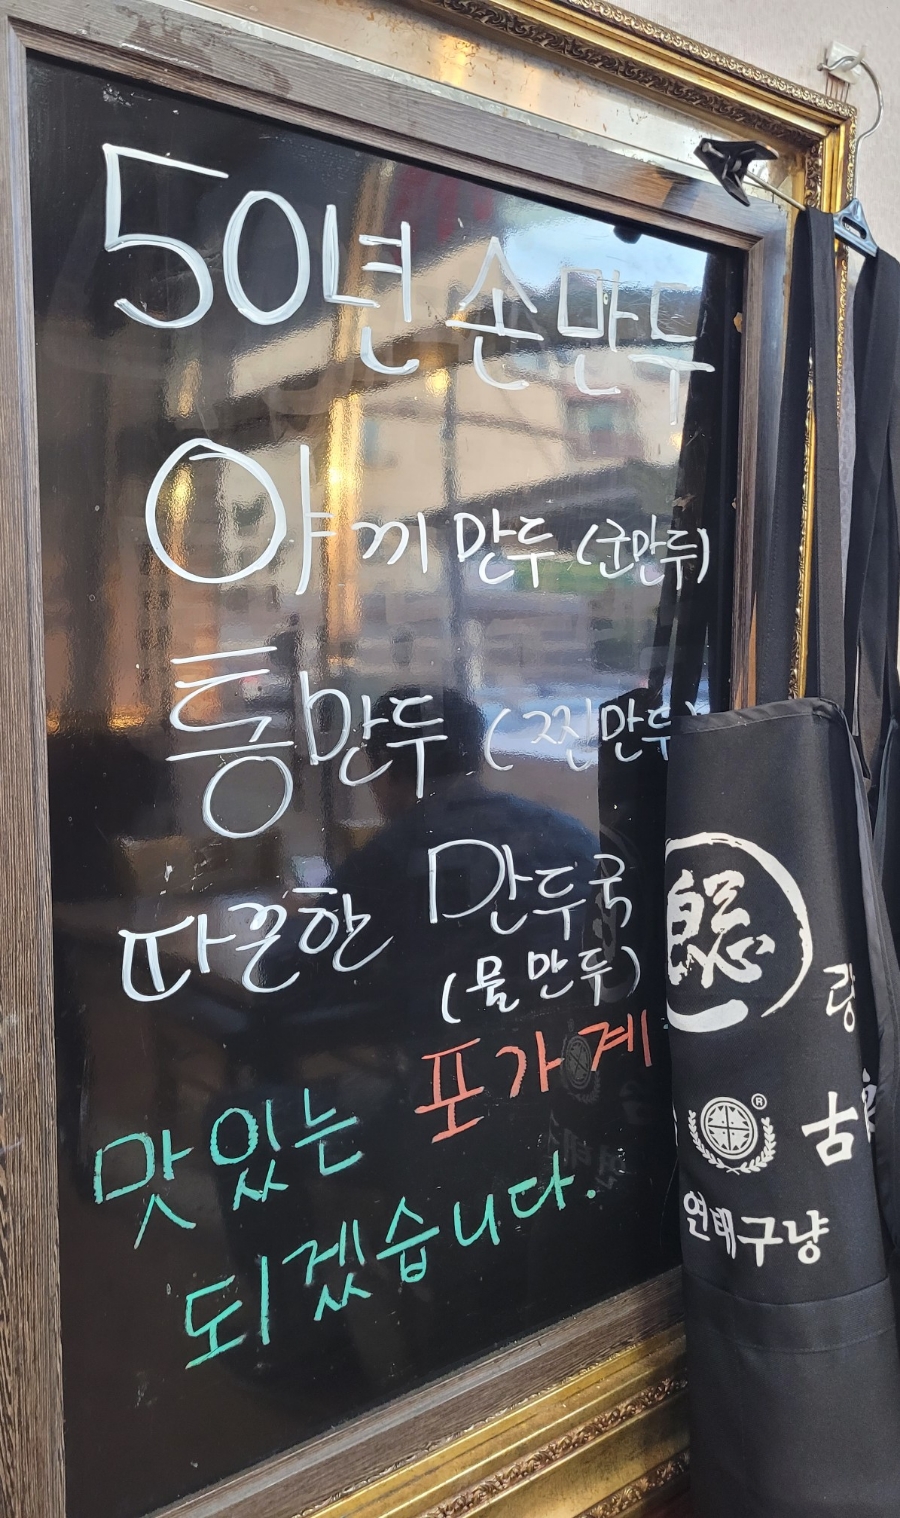 50년 손만두
야끼만두 (군만두)
통만두 (찐만두)
따끈한 만두국
(물만두)
맛있는 포가계
되겠습니다.
랑
®
古
연태구냥